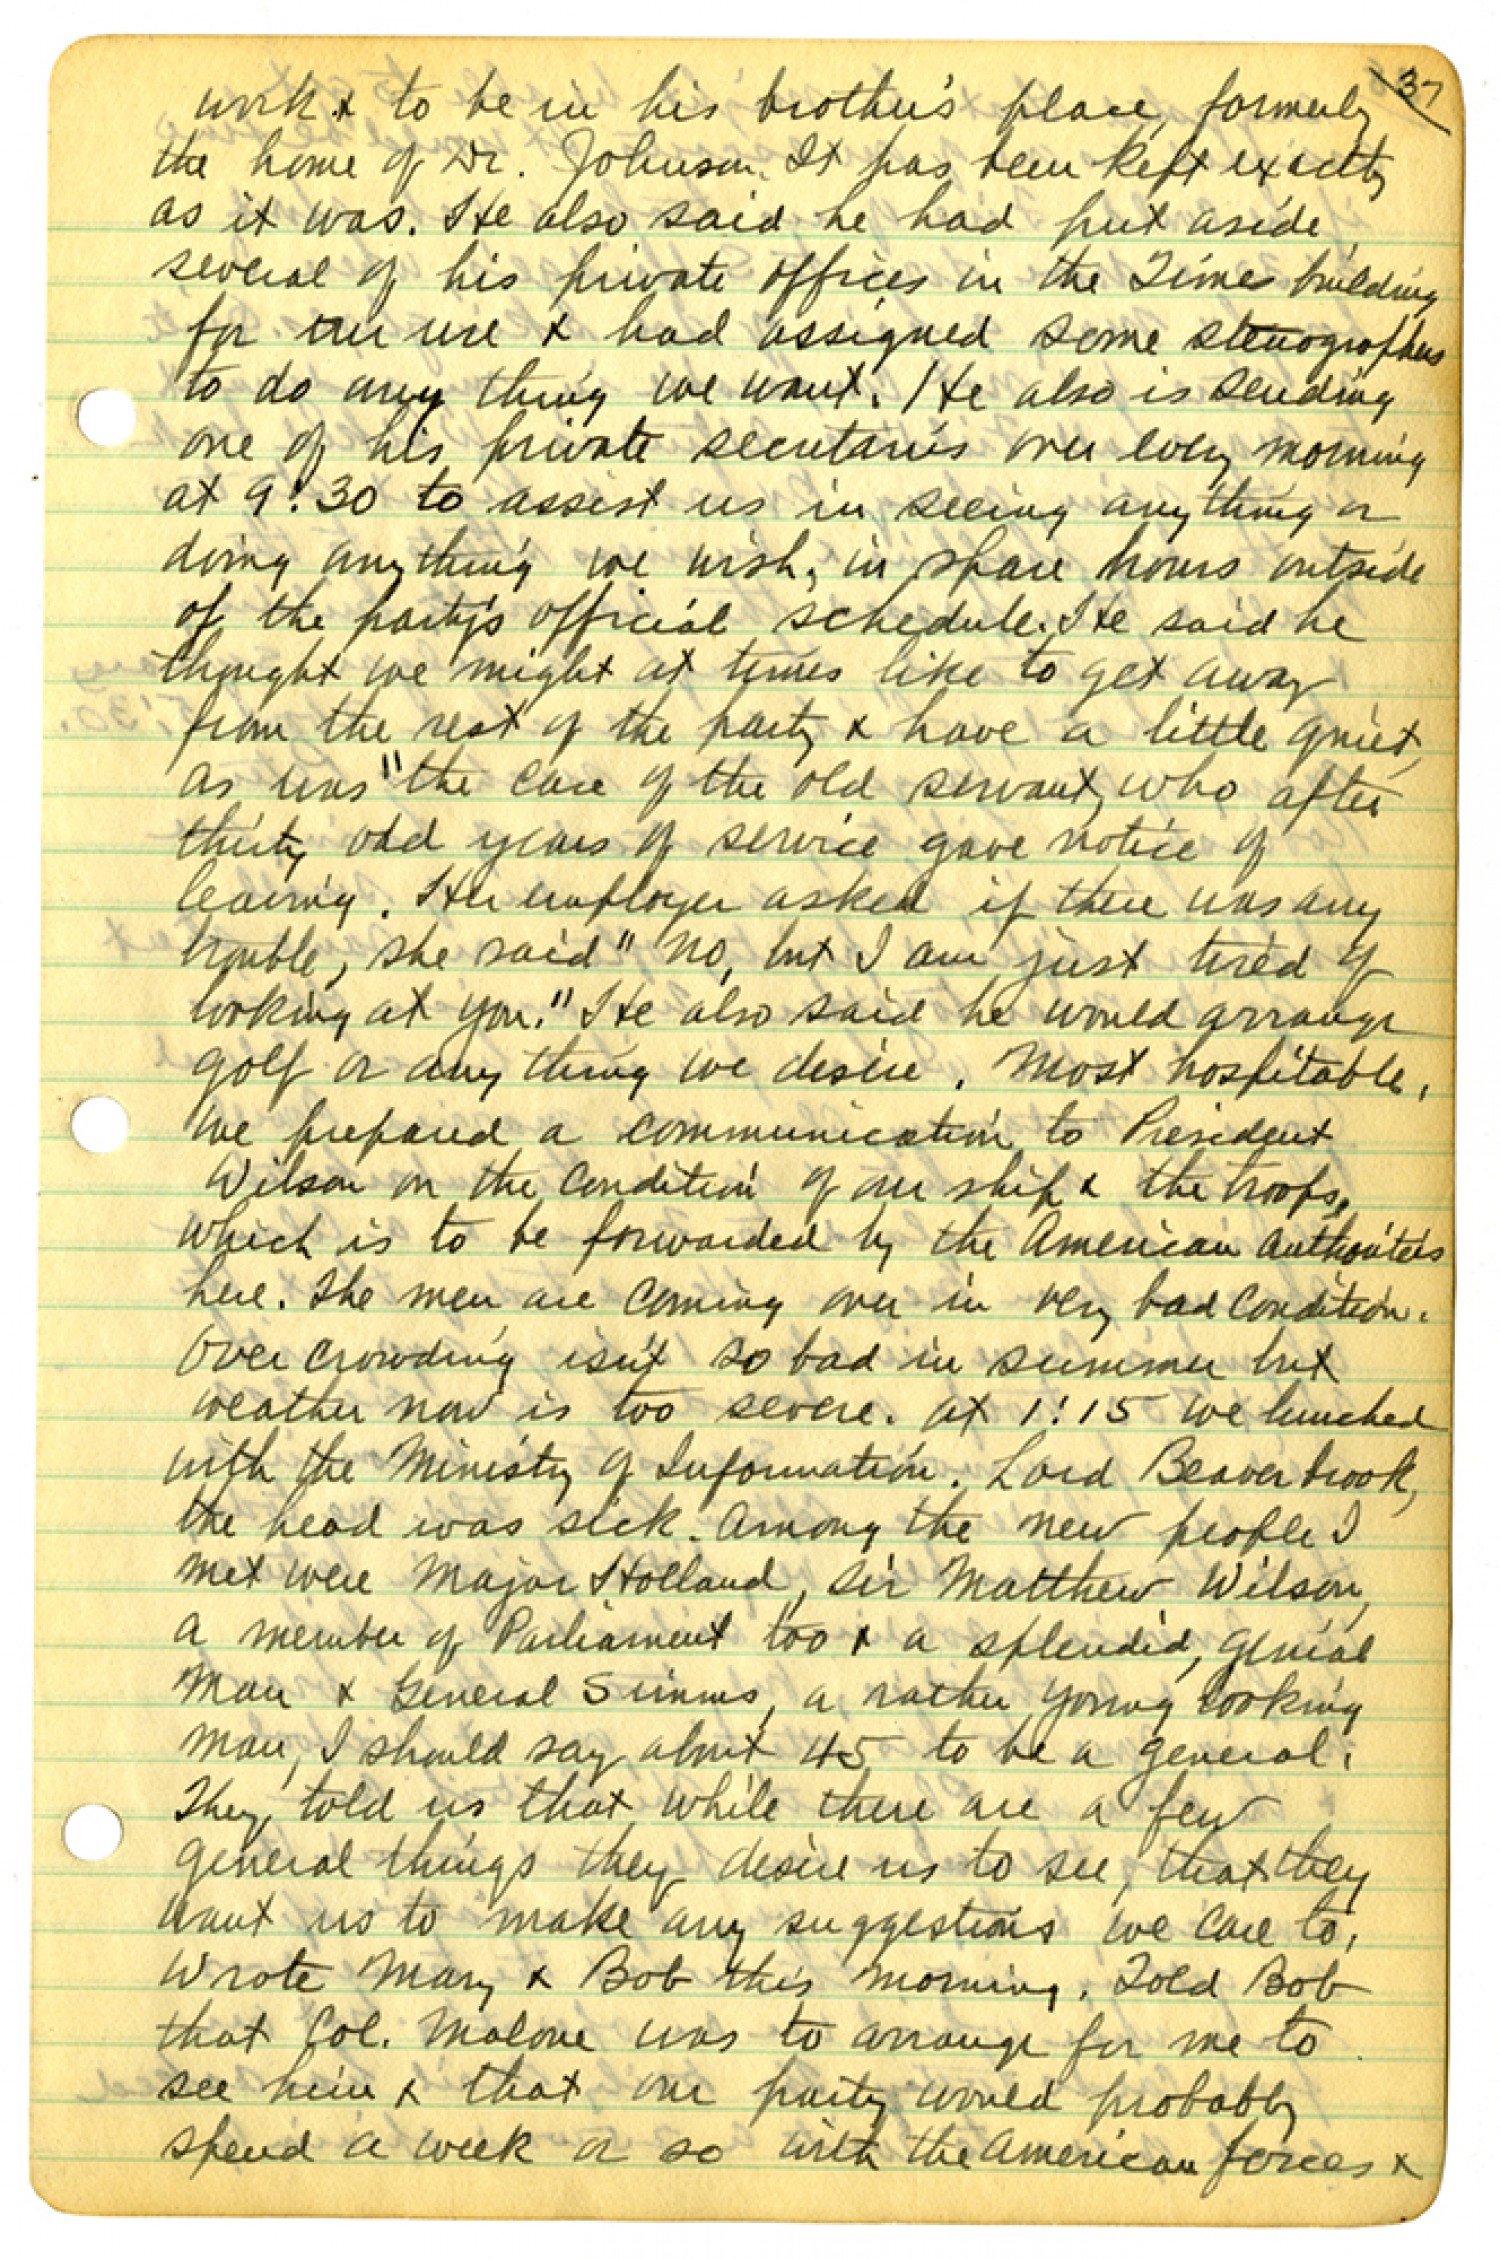 37
work & to be in his brother's place, formerly
the home of Dr. Johnson. It has been kept exactly
as it was. He also said he had put aside
several of his private offices in the Times building
for our use & had assigned some stenographers
to do any thing we want. He also is sending
one of his private secretaries over every morning
at 9:30 to assist us in seeing any thing or
doing any thing we wish, in spare hours outside
of the party's official schedule. He said he
thought we might at times like to get away
from the rest of the party & have a little quiet,
as was "the case of the old servant, who after
thirty odd years of service gave notice of
leaving. Her employer asked if there was any
trouble, she said "No, but I am just tired of
looking at you." He also said he would arrange
golf or any thing we desire. Most hospitable.
We prepared a communication to President
Wilson on the condition of our ship & the troops,
which is to be forwarded by the American authorities
here. The men are coming over in very bad condition.
Over crowding isn't so bad in summer but
weather now is too severe. At 1:15 we lunched
with the Ministry of Information. Lord Beaverbrook,
the head was sick. Among the new people I
met were Major Holland, Sir Matthew Wilson,
a member of Parliament too & a splendid, genial
man & General Simms, a rather young looking
man, I should say about 45 to be a general.
They told us that while there are a few
general things they desire us to see, that they
want us to make any suggestions we care to.
Wrote Mary & Bob this morning. Told Bob
that Col. Malone was to arrange for me to
see him & that our party would probably
spend a week or so with the American forces &